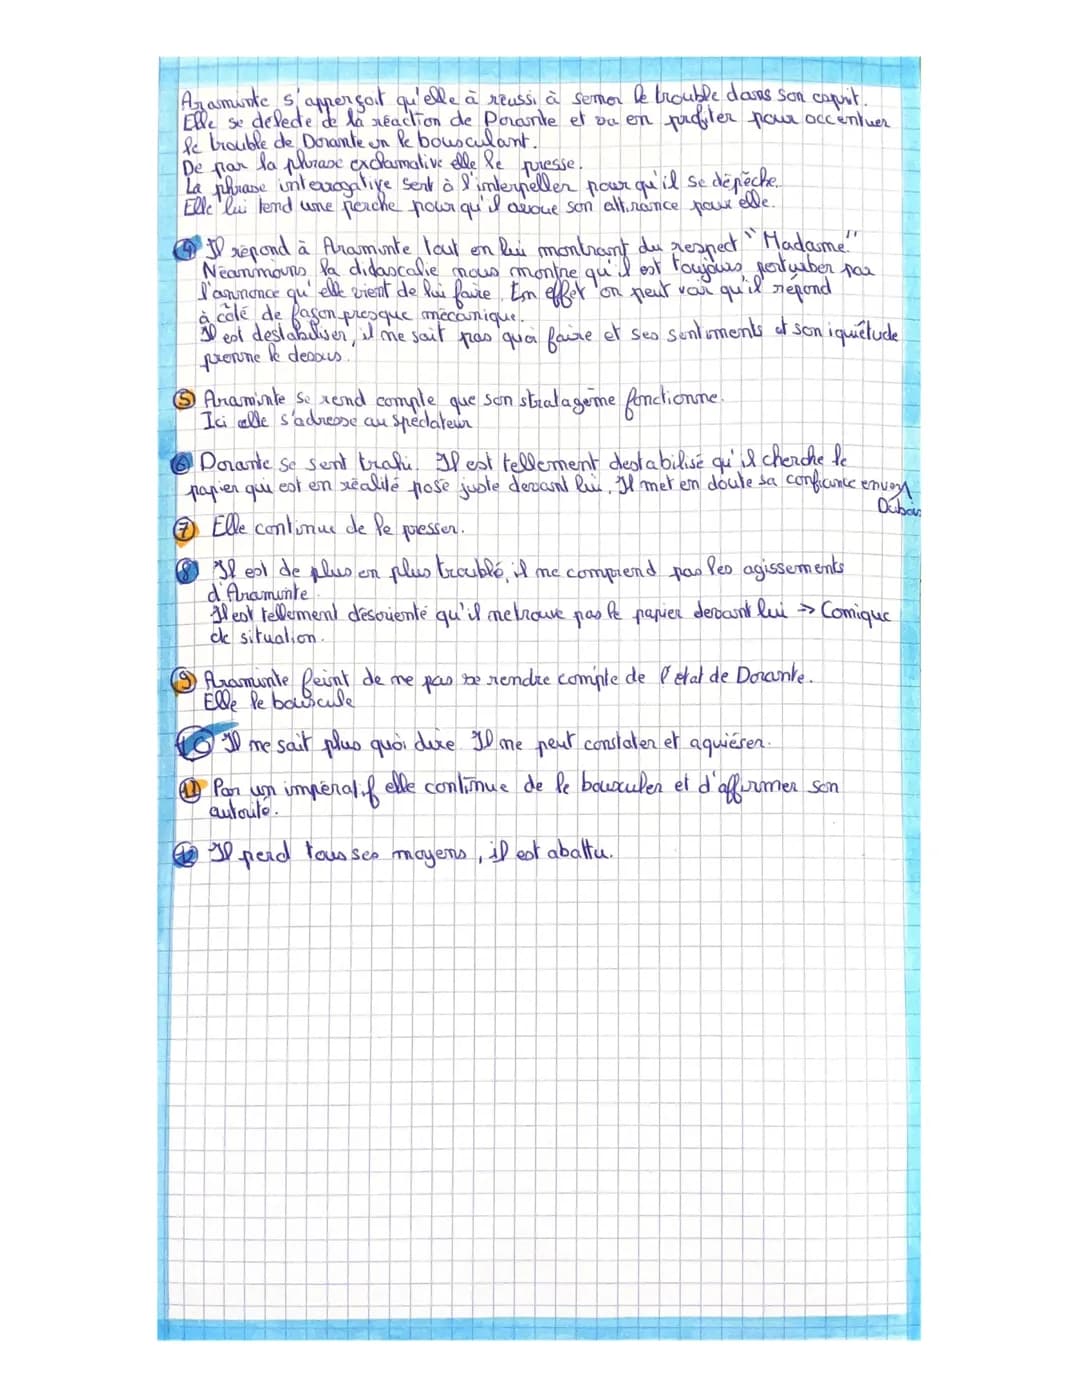 Araminte s'apperçoit qu'elle à réussi à semer le trouble dans son esprit.
Elle se délecte de la réaction de Dorante et va en profiter pour accentuer
le trouble de Dorante en le bousculant.
De par la phrase exclamative elle le presse.
La phrase interrogative sert à l'interpeller pour qu'il se dépêche.
Elle lui tend une perche pour qu'il avoue son attirance pour elle.
④ Il répond à Araminte tout en lui montrant du respect "Madame".
Néanmoins la didascalie nous montre qu'il est toujours perturber par
l'annonce qu'elle vient de lui faire. En effet on peut voir qu'il répond
à côté de façon presque mécanique.
Il est destabiliser, il ne sait pas quoi faire et ses sentiments et son iquiétude
prenne le dessus.
⑤ Araminte se rend compte que son stratagème fonctionne.
Ici elle s'adresse au spectateur
⑥ Dorante se sent trahi. Il est tellement destabilisé qu'il cherche le
papier qui est en réalité posé juste devant lui. Il met en doute sa confiance envers
Dubois
⑦ Elle continue de le presser.
⑧ Il est de plus en plus troublé, il ne comprend pas les agissements
d'Araminte.
Il est tellement désorienté qu'il ne trouve pas le papier devant lui => Comique
de situation.
⑨ Araminte feint de ne pas se rendre compte de l'état de Dorante.
Elle le bouscule
⑩ Il ne sait plus quoi dire. Il ne peut constater et aquiéser.
⑪ Par un impératif elle continue de le bousculer et d'affirmer son
autorité.
⑫ Il perd tous ses moyens, il est abattu.